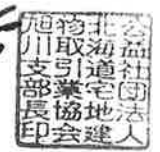 公益社団法人
北海道宅地建
物取引業協会
旭川支部長印